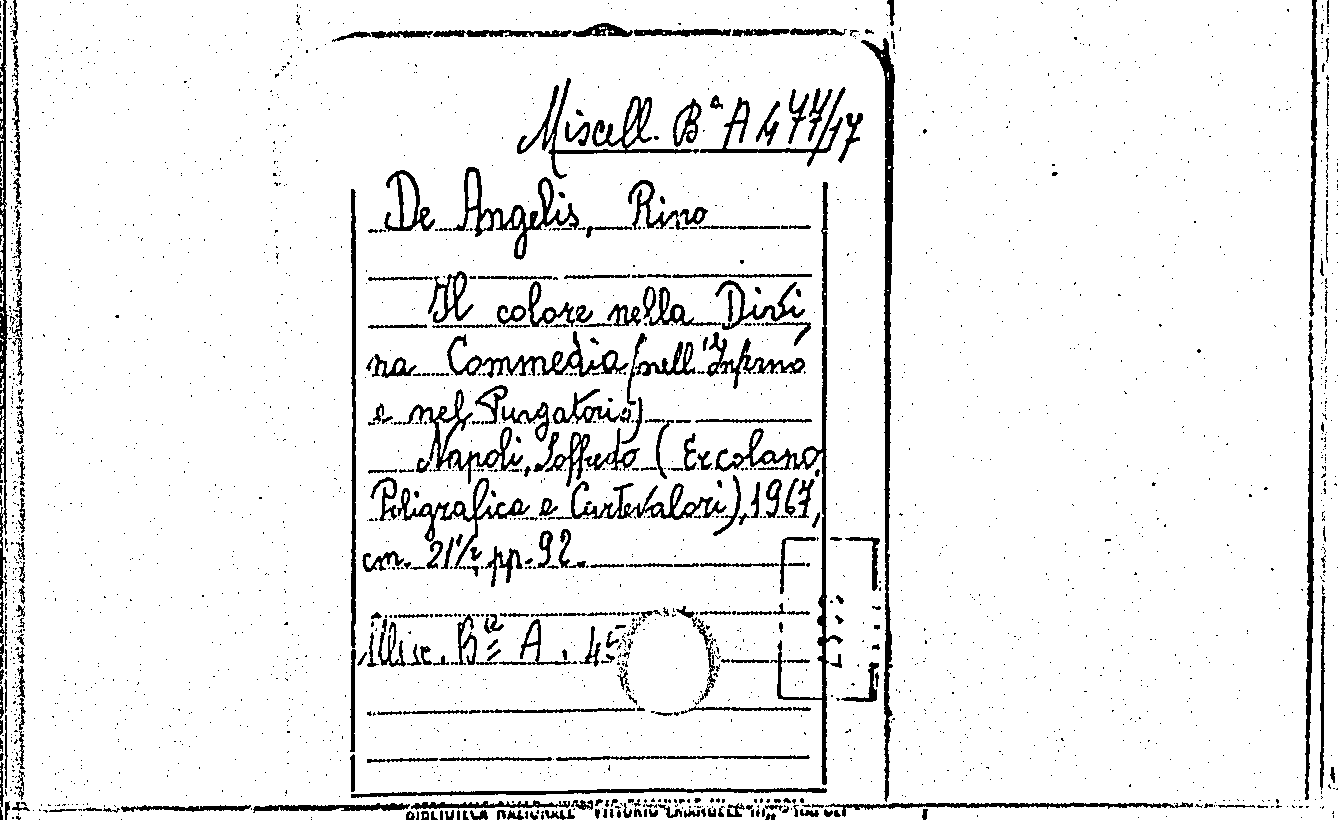 Miscell. Bª A 477/17
De Angelis, Rino
Il colore nella Divi
na Commedia (nell'Inferno
e nel Purgatorio)
Napoli, Loffredo (Ercolano,
Poligrafica e Cartevalori), 1967,
cm. 21½, pp. 92.
Misc. Bª A. 45
BIBLIOTECA NAZIONALE "VITTORIO EMANUELE III" - NAPOLI